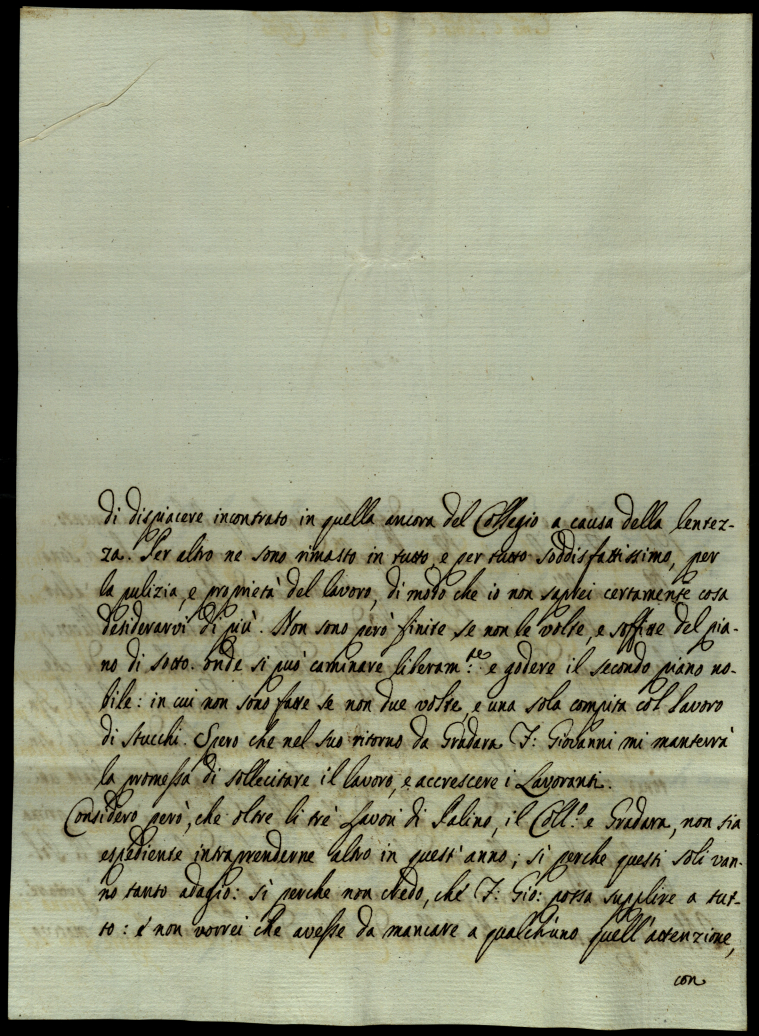 di dispiacere incontrato in quella ancora del Collegio a causa della lentez-
za. Per altro ne sono rimasto in tutto, e per tutto soddisfattissimo, per
la pulizia, e proprietà del lavoro, di modo che io non saprei certamente cosa
desiderarvi di più. Non sono però finite se non le volte, e soffitte del pia-
no di sotto. onde si può caminare liberam.te e godere il secondo piano no-
bile: in cui non sono fatte se non due volte, e una sola compita col lavoro
di stucchi. Spero che nel suo ritorno da Gradara F: Giovanni mi manterrà
la promessa di sollecitare il lavoro, e accrescere i Lavoranti.
Considero però, che oltre li trè Lavori di Palino, il Coll.o e Gradara, non sia
espediente intraprenderne altro in quest'anno; sì perche questi soli van-
no tanto adagio: sì perche non credo, che F: Gio: possa supplire a tut-
to: e non vorrei che avesse da mancare a qualch'uno quell'attenzione,
con